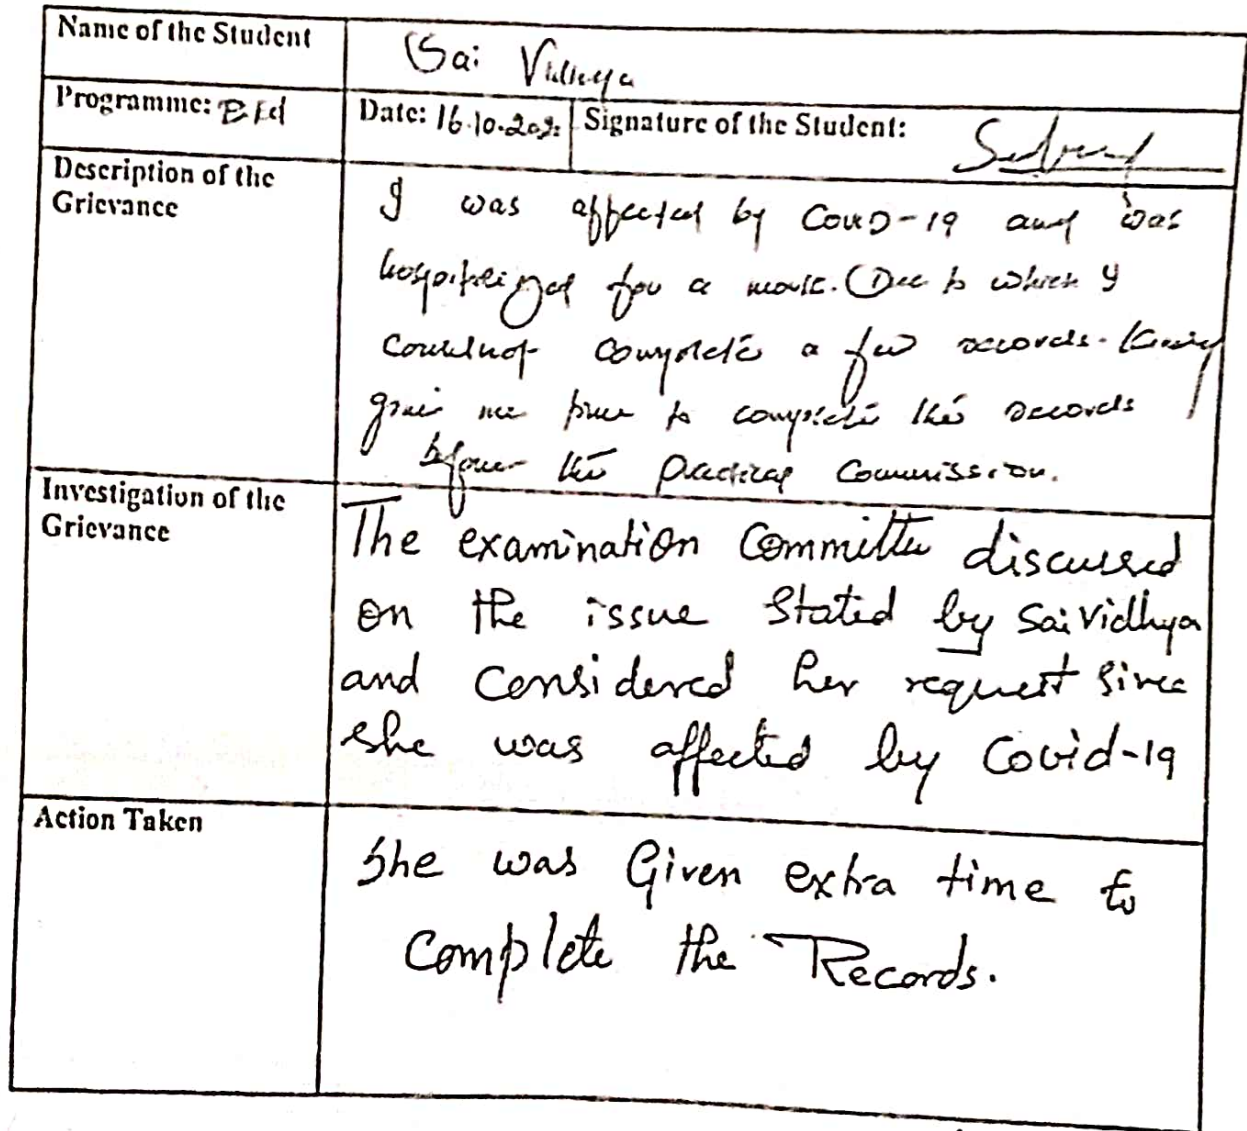 Name of the Student
Sai Vidhya
Programme: B.Ed
Date: 16.10.202
Signature of the Student:
Description of the
Grievance
I was affected by Covid-19 and was
hospitalized for a month. Due to which I
could not complete a few records. Kindly
give me time to complete the records
before the practical commission.
Investigation of the
Grievance
The examination Committee discussed
on the issue Stated by Sai Vidhya
and Considered her request Since
she was affected by Covid-19
Action Taken
She was Given extra time to
Complete the Records.